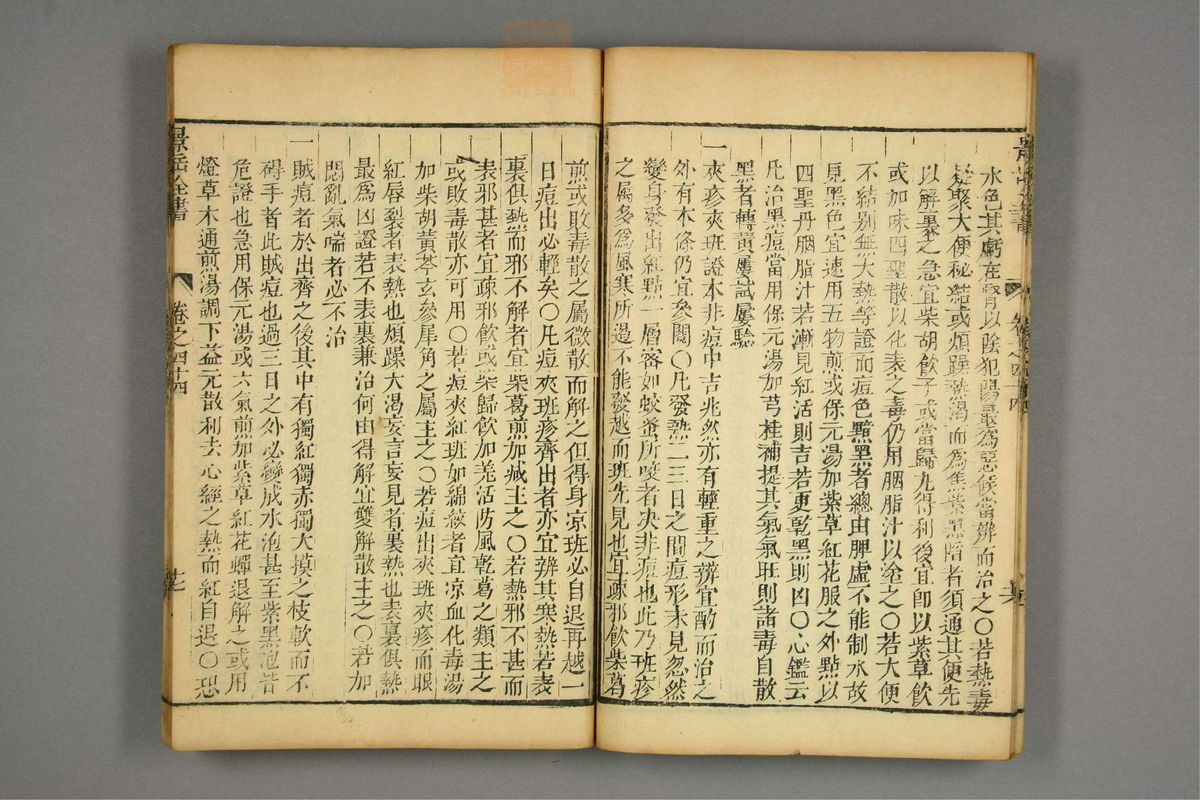 水色其虧在腎以陰犯陽最爲惡候當辨而治之〇若熱毒
凝聚大便秘結或煩躁熱渴而爲焦紫黑陷者須通其便先
以解裏之急宜柴胡飲子或當歸丸得利後宜卽以紫草飲
或加味四聖散以化表之毒仍用胭脂汁以塗之〇若大便
不結別無大熱等證而痘色黯黑者總由脾虛不能制水故
見黑色宜速用五物煎或保元湯加紫草紅花服之外點以
四聖丹胭脂汁若漸見紅活則吉若更乾黑則凶〇心鑑云
凡治黑痘當用保元湯加芎桂補提其氣氣旺則諸毒自散
黑者轉黃屢試屢驗
一夾疹夾班證本非痘中吉兆然亦有輕重之辨宜酌而治之
外有本條仍宜參閱〇凡發熱二三日之間痘形未見忽然
變身發出紅點一層密如蚊蚤所咬者决非痘也此乃班疹
之屬多爲風寒所遏不能發越而班先見也宜疎邪飲柴葛
煎或敗毒散之屬微散而解之但得身凉班必自退再越一
日痘出必輕矣〇凡痘夾班疹齊出者亦宜辨其寒熱若表
裏俱熱而邪不解者宜柴葛煎加減主之〇若熱邪不甚而
表邪甚者宜疎邪飲或柴歸飲加羌活防風乾葛之類主之
或敗毒散亦可用〇若痘夾紅班如綿紋者宜凉血化毒湯
加柴胡黃芩玄參犀角之屬主之〇若痘出夾班夾疹而眼
紅唇裂者表熱也煩躁大渴妄言妄見者裏熱也表裏俱熱
最爲凶證若不表裏兼治何由得解宜雙解散主之〇若加
悶亂氣喘者必不治
一賊痘者於出齊之後其中有獨紅獨赤獨大摸之枝軟而不
碍手者此賊痘也過三日之外必變成水泡甚至紫黑泡皆
危證也急用保元湯或六氣煎加紫草紅花蟬退解之或用
燈草木通煎湯調下益元散利去心經之熱而紅自退〇恐
景岳全書
卷之四十四